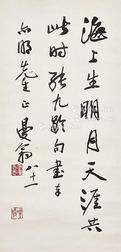 海上生明月天涯共
此时张九龄句书奉
尚明先生正 曼翁八十二